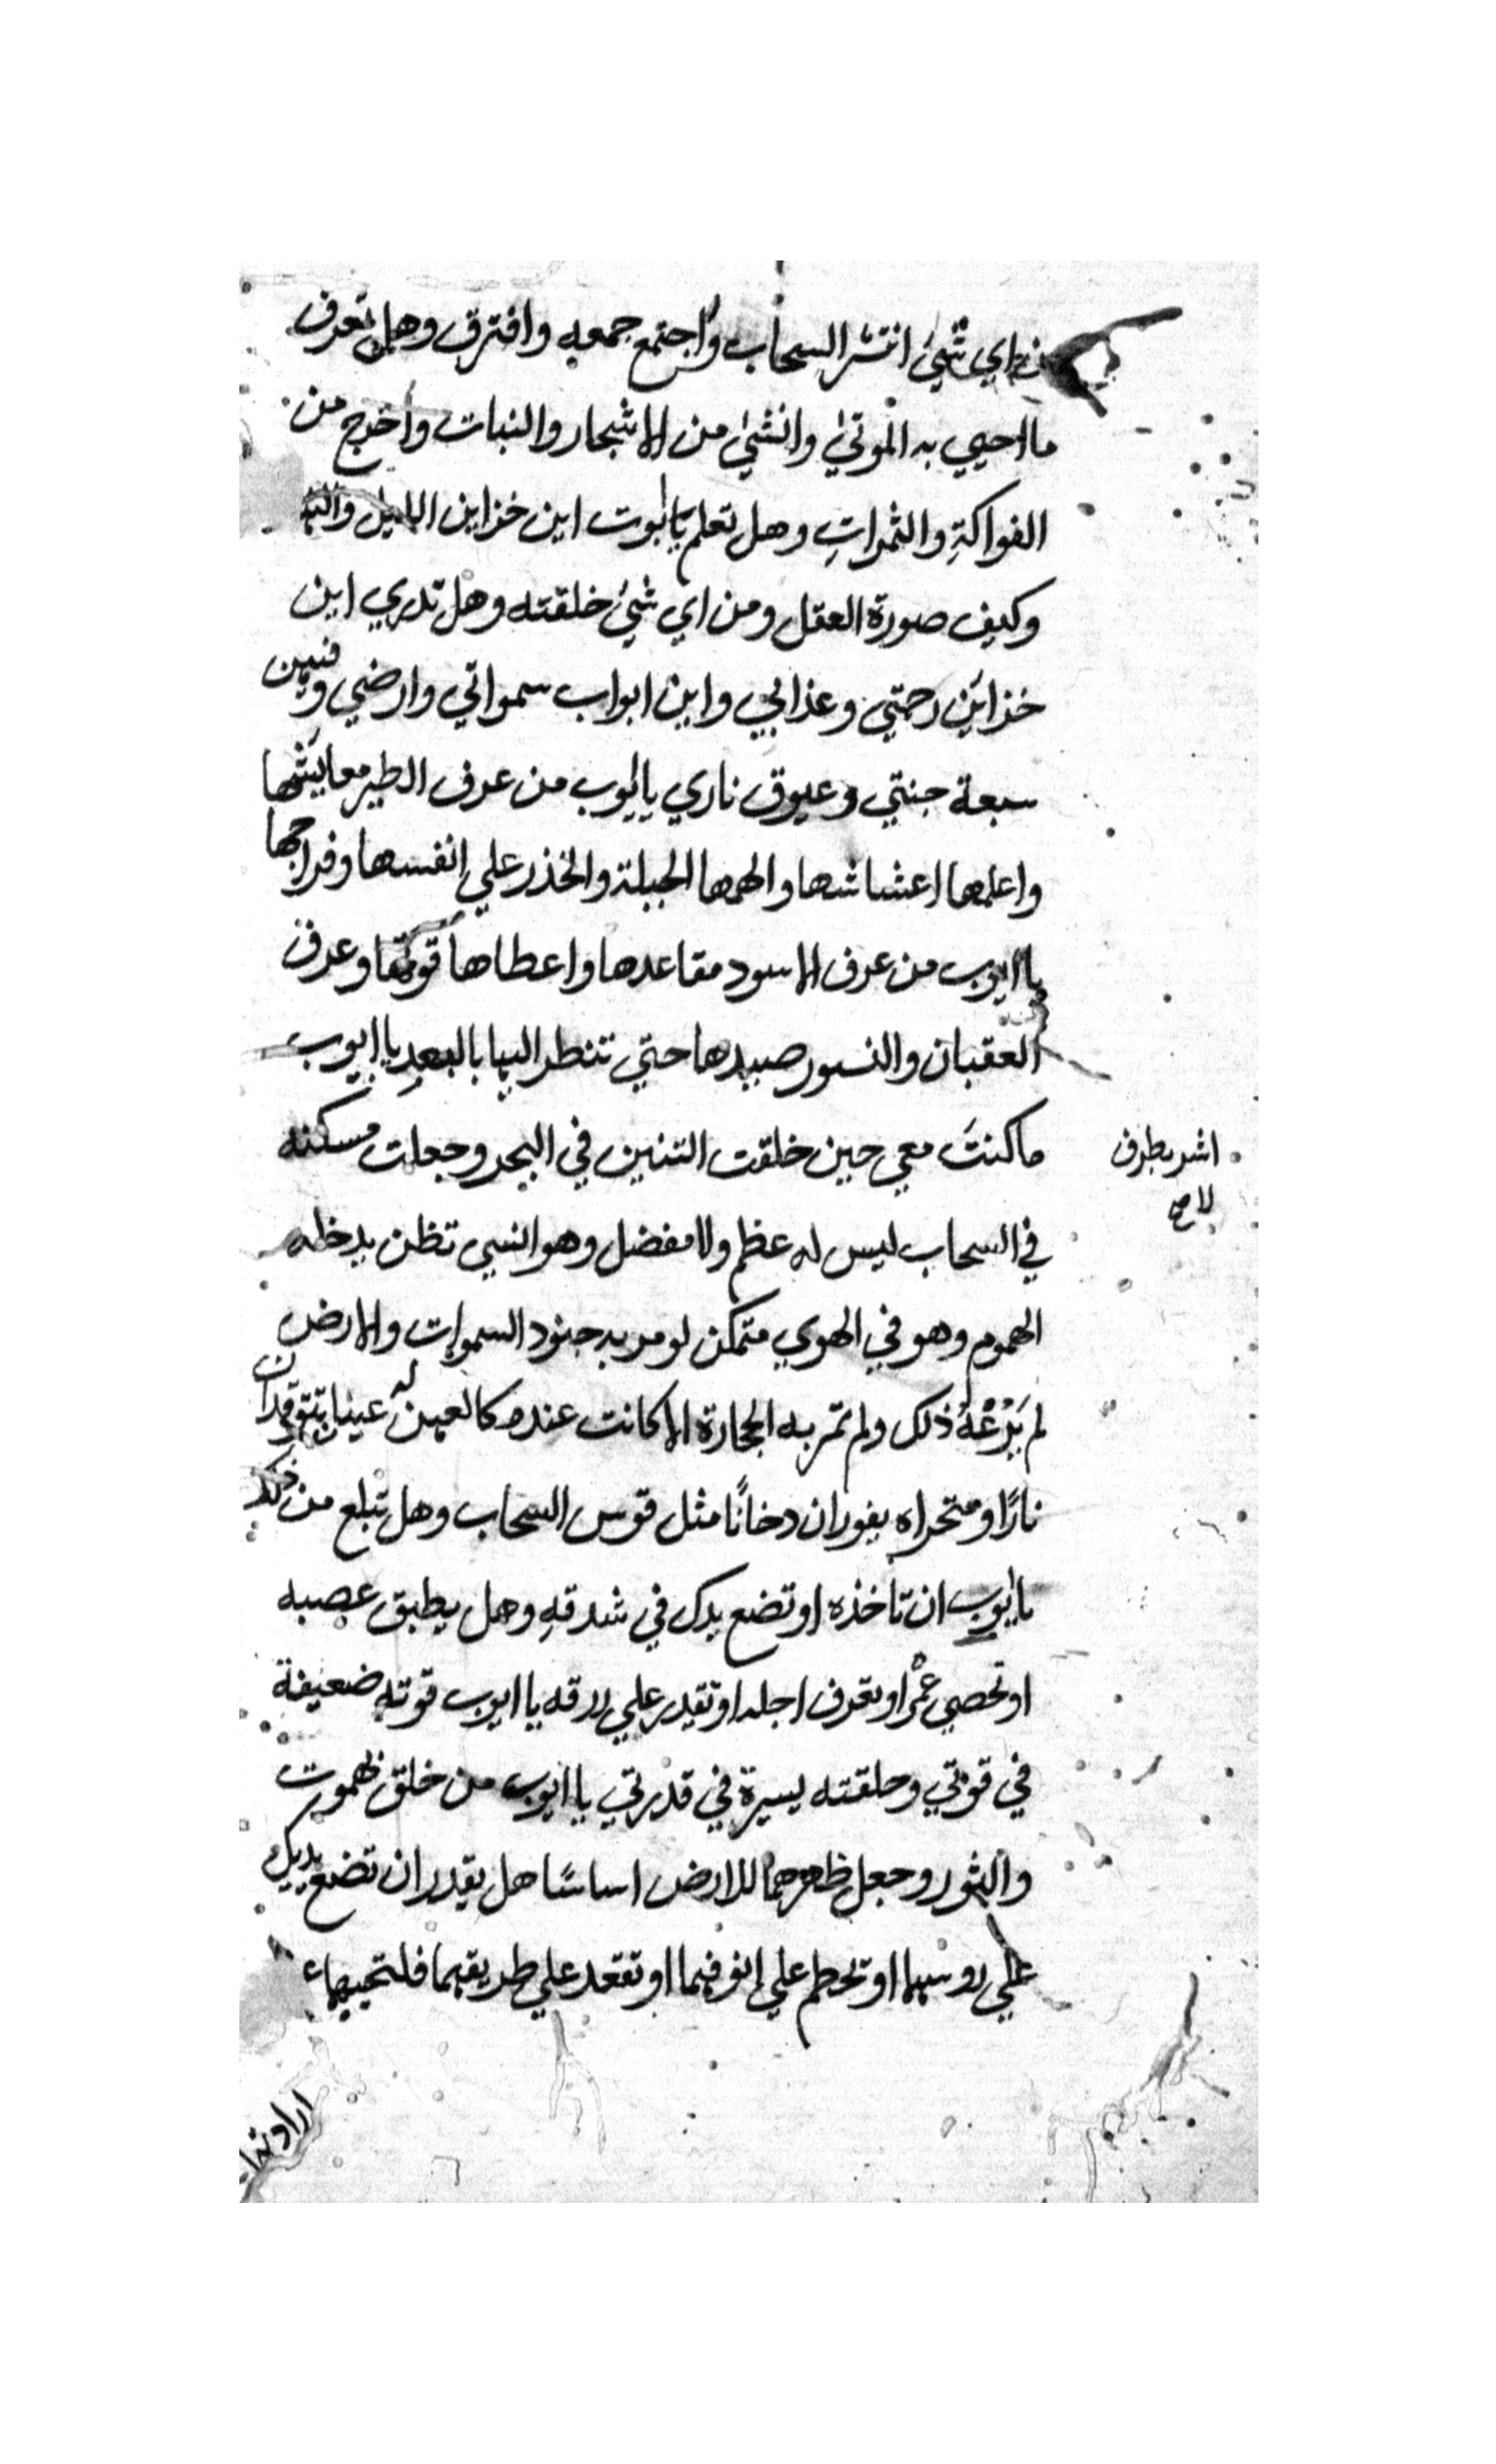 من اي شئ انتشر السحاب واجتمع جمعه وافترق وهل تعرف
ما احيي به الموتى وانشئ من الاشجار والنبات واخرج من
الفواكة والثمرات وهل تعلم يا ايوب اين خزاين الليل والنها
وكيف صورة العقل ومن اي شئ خلقته وهل تدري اين
خزاين رحمتي وعذابي واين ابواب سمواتي وارضي
سبعة جنتي وعيوق ناري يا ايوب من عرف الطير معايشها
واعلمها اعشاشها والهمها الجبلة والحذر علي انفسها وفراخها
يا ايوب من عرف الاسود مقاعدها واعطاها قوتها وعرف
العقبان والنسور صيدها حتي تنظر اليها بالبعد يا ايوب
ما كنتَ معي حين خلقت التنين في البحر وجعلت مسكنه
اشر بطرف
لاح
في السحاب ليس له عظم ولا مفضل وهو انسي تظن يدخله
الهموم وهو في الهوي متمكن لو مر به جنود السموات والارض
لم يَرُعْهُ ذلك ولم تمر به الحجارة الا كانت عنده كالعهن له عينان تتوقدان
نارًا ومنخراه يفوران دخانًا مثل قوس السحاب وهل تبلغ من
يا ايوب ان تاخذه او تضع يدك في شدقهِ وهل يطيق عصبه
او تحصي عمْرا وتعرف اجله او تقدر علي رزقه يا ايوب قوته ضعيفة
في قوتي وخلقته يسيرة في قدرتي يا ايوب من خلق بهموت
والثور وجعل ظهرهما للارض اساسًا هل تقدر ان تضع يديك
علي روسهما او تخطم علي انوفهما او تقعد علي طريقهما فلتحييهما